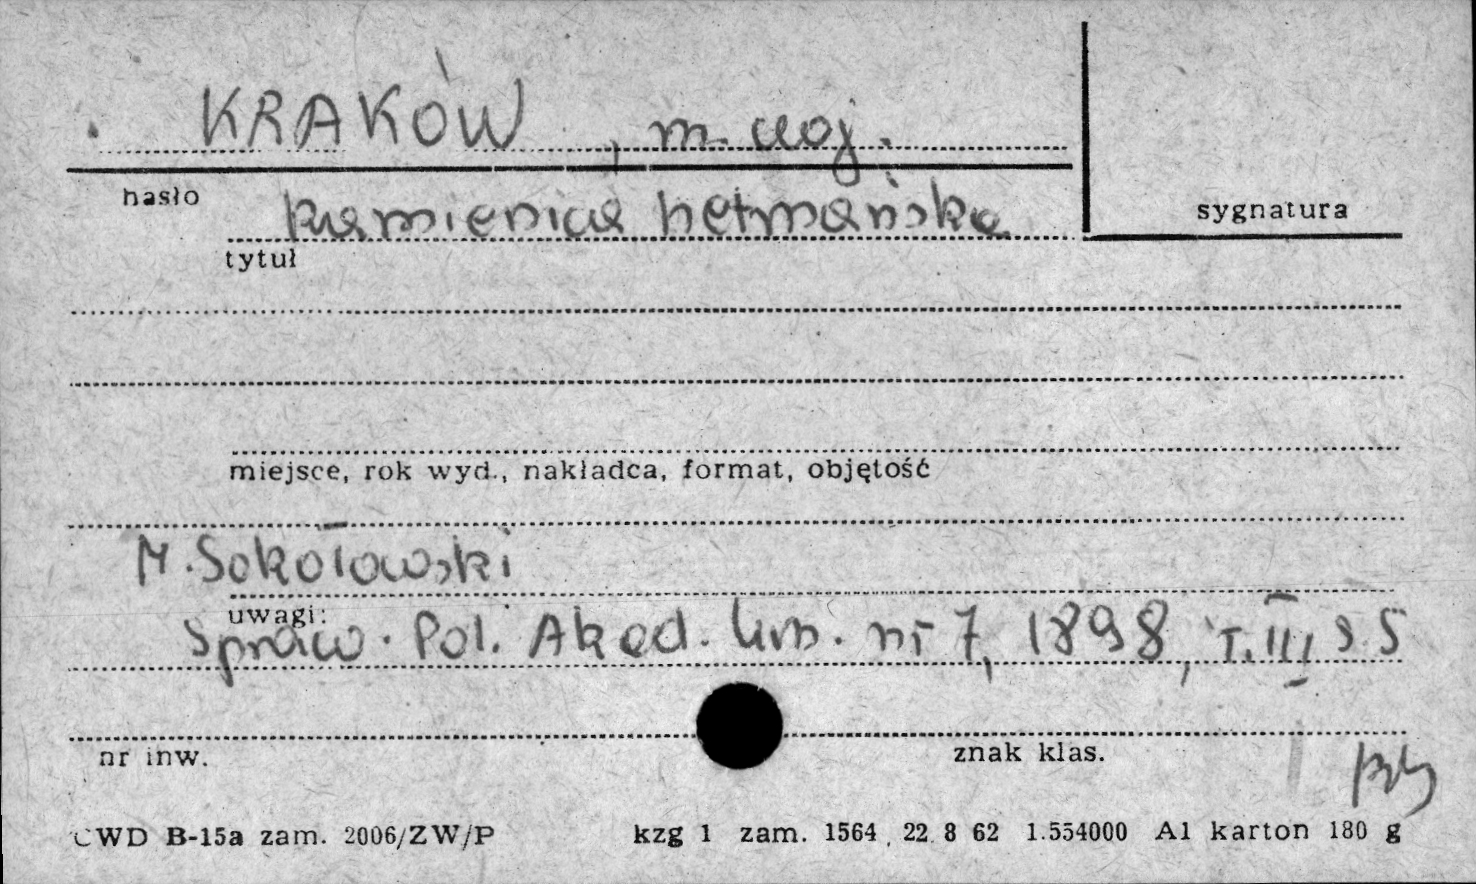 KRAKÓW, m. woj.
hasło
kamienica hetmańska
sygnatura
tytuł
miejsce, rok wyd., nakładca, format, objętość
M. Sokołowski
uwagi:
Spraw. Pol. Akad. Um. nr 7, 1898, T. III, s. 5
nr inw.
znak klas.
CWD B-15a zam. 2006/ZW/P kzg 1 zam. 1564, 22 8 62 1.554000 A1 karton 180 g